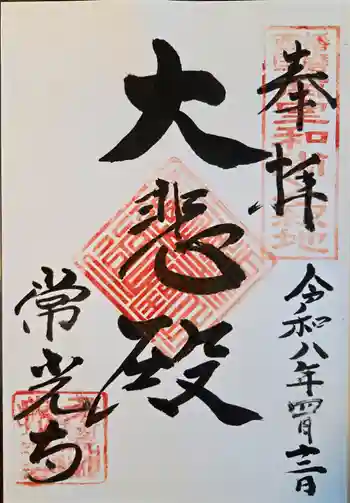 奉拝
大悲殿
常光寺
令和八年四月十二日